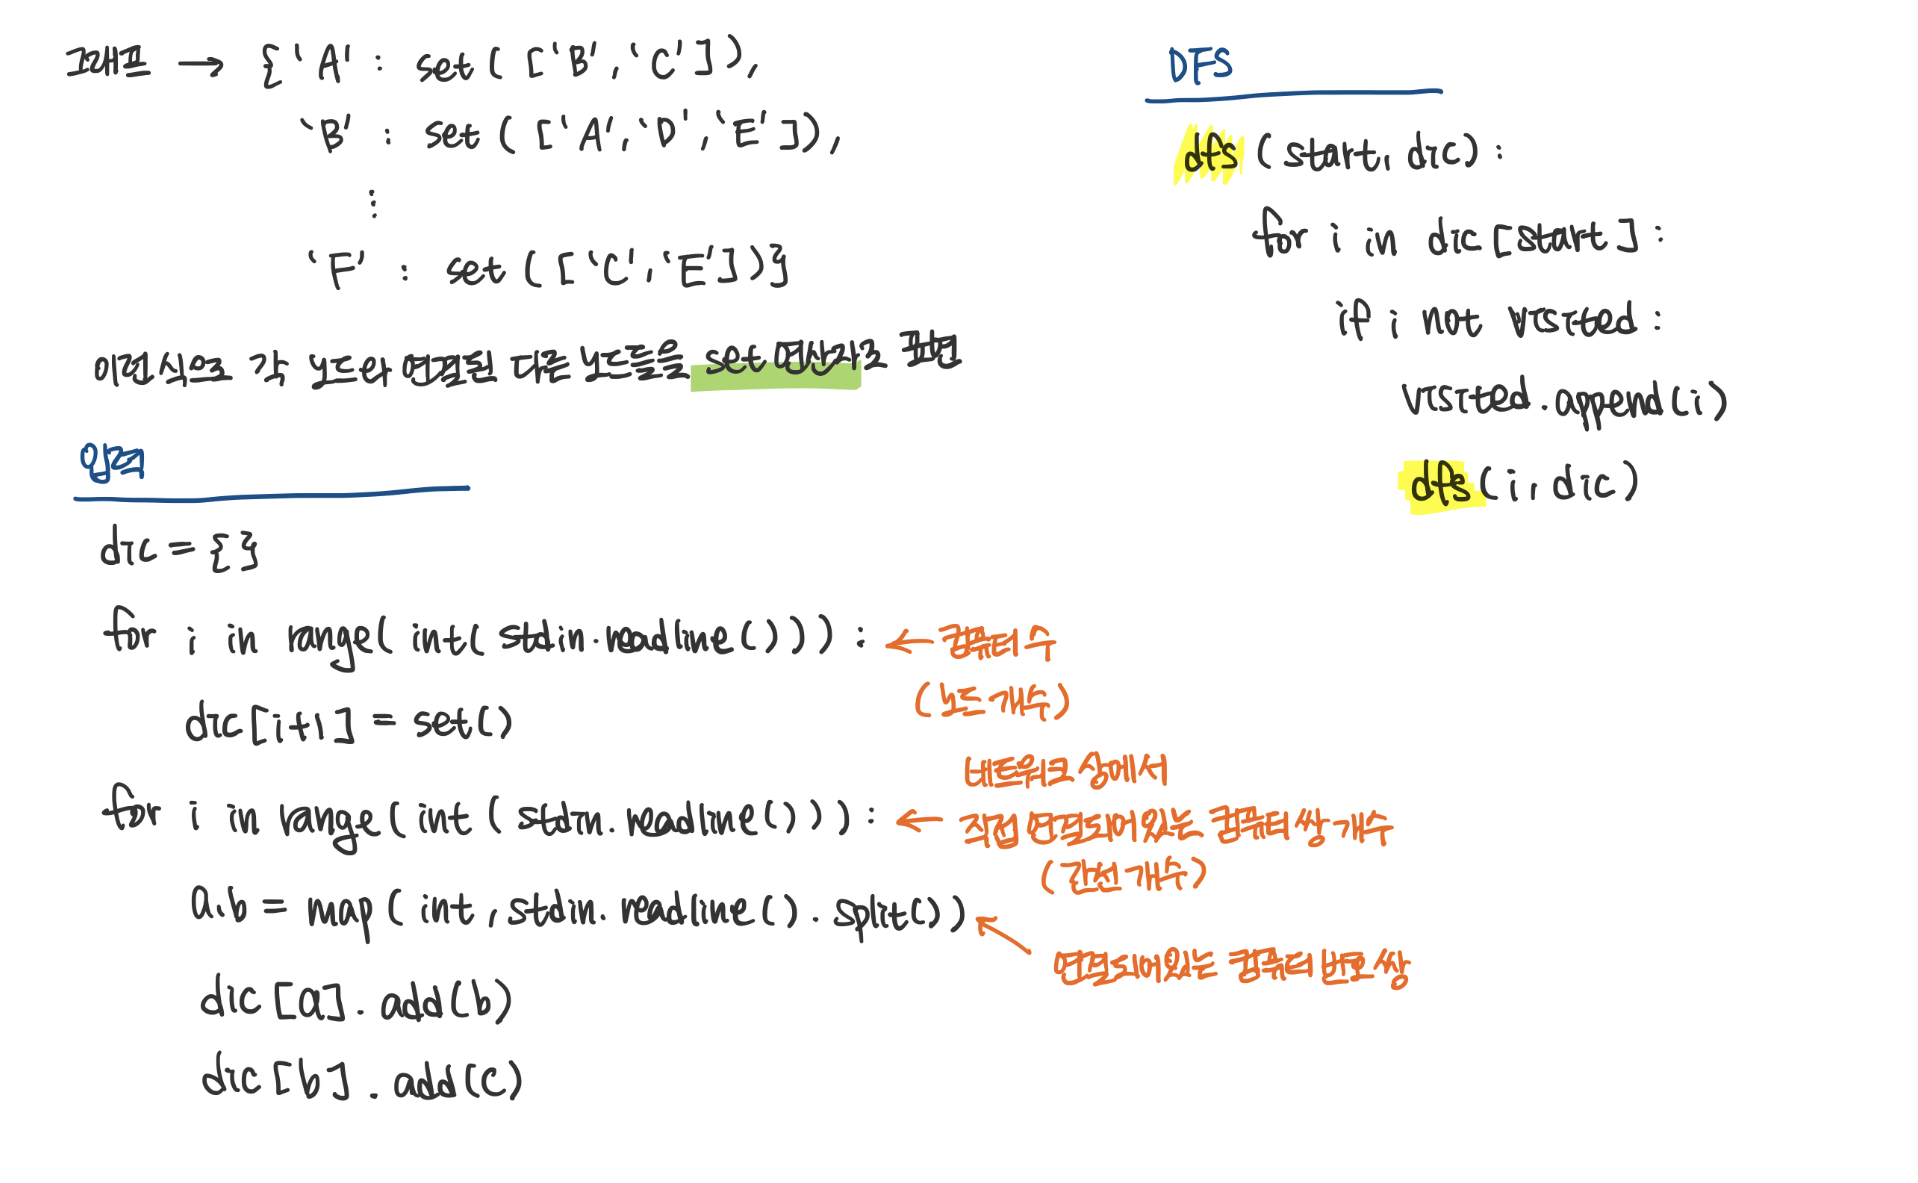 그래프 → {'A' : set ( ['B', 'C'] ),
'B' : set ( ['A', 'D', 'E'] ),
⋮
'F' : set ( ['C', 'E'] )}
이런 식으로 각 노드와 연결된 다른 노드들을 set 연산자로 표현
입력
dic = {}
for i in range( int( stdin.readline() ) ) : ← 컴퓨터 수
(노드 개수)
dic [i+1] = set()
네트워크 상에서
for i in range( int ( stdin.readline() ) ) : ← 직접 연결되어있는 컴퓨터 쌍 개수
(간선 개수)
a,b = map ( int , stdin.readline() . split() )
연결되어있는 컴퓨터 번호 쌍
dic [a] . add(b)
dic [b] . add(c)
DFS
dfs (start, dic) :
for i in dic [start] :
if i not visited :
visited.append(i)
dfs (i, dic)